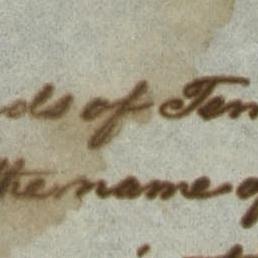 ds of Tem
the name of